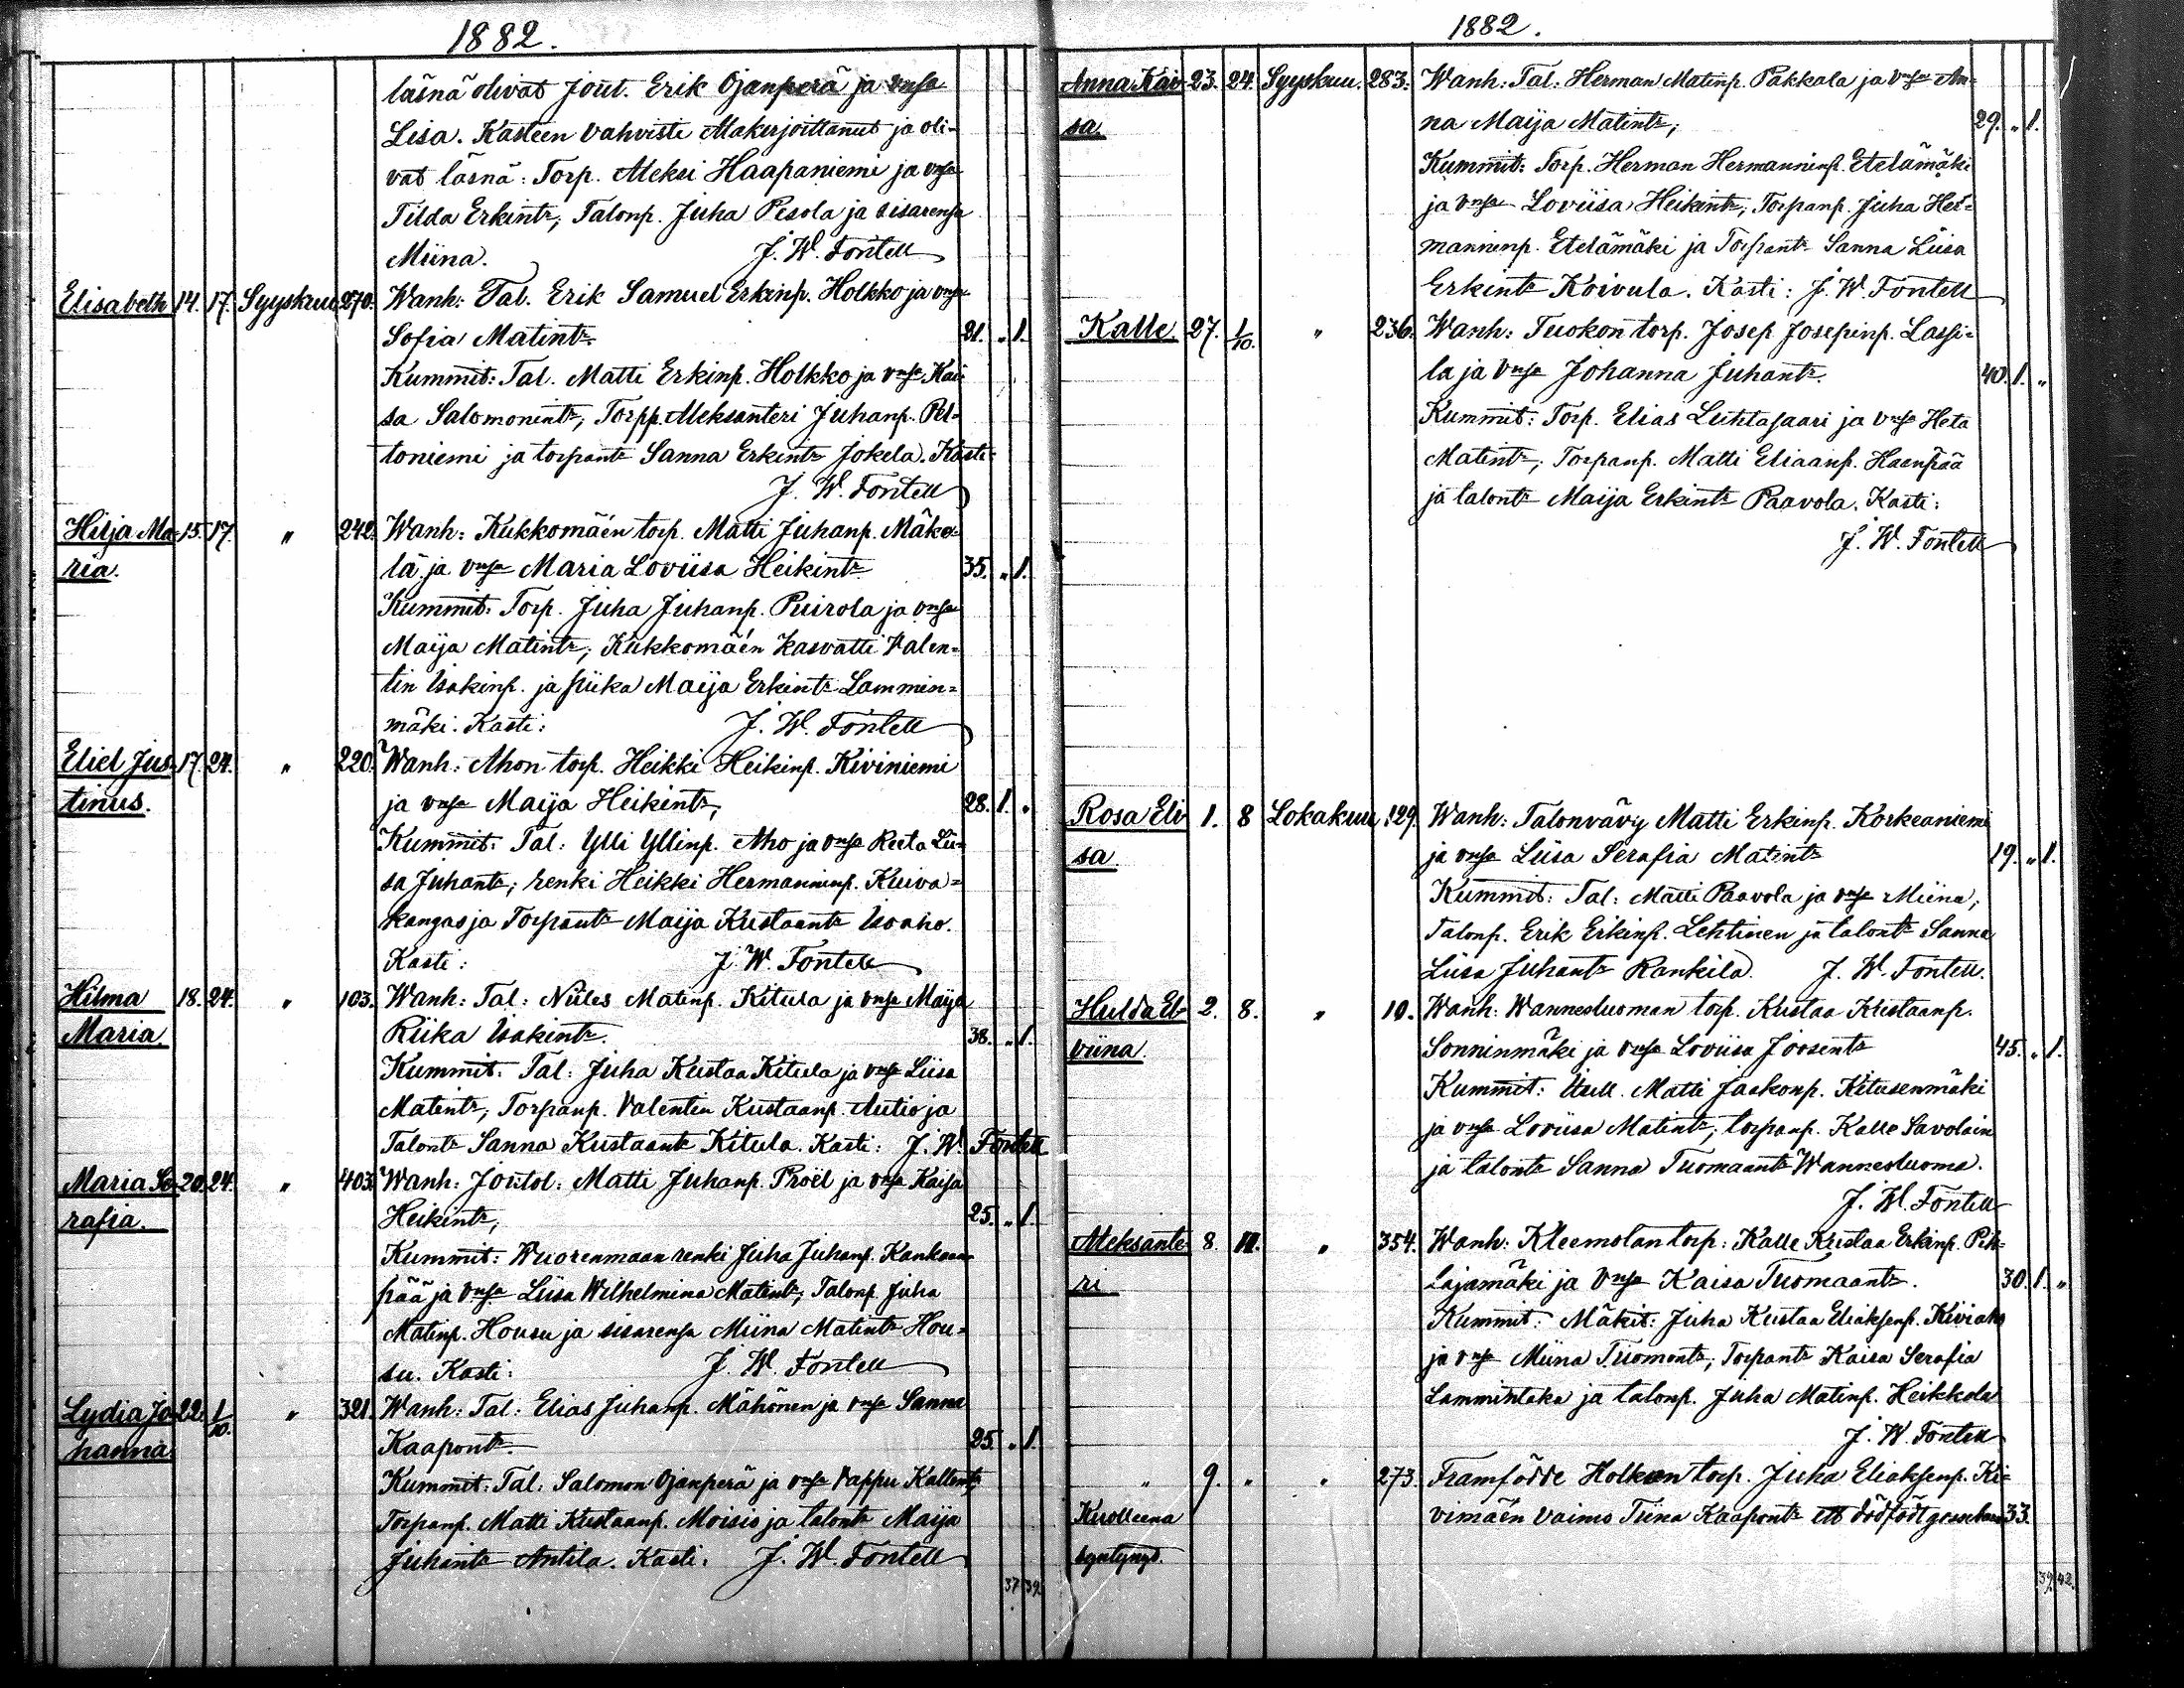 1882.
läsnä olivat Jout. Erik Ojanperä ja vmsa
Lisa. Kasteen vahvisti Makerjoittanut ja oli-
vat läsnä: Torp. Aleksi Haapaniemi ja vmsa
Tilda Erkintr, Talonp. Juha Pesola ja sisarensa
Miina. J. W. Fontell
Elisabeth 14. 17. Syyskuu 270. Wanh: Tal. Erik Samuel Erkinp. Holkko ja vmsa
Sofia Matintr. 21. " 1.
Kummit: Tal. Matti Erkinp. Holkko ja vmsa Kai-
sa Salomonintr, Torpp. Aleksanteri Juhanp. Pel-
toniemi ja torpantr Sanna Erkintr Jokela. Kasti:
J. W. Fontell
Hilja Ma- 15. 17. " 242. Wanh: Kukkomäen torp. Matti Juhanp. Mäke-
ria. lä ja vmsa Maria Loviisa Heikintr 35. " 1.
Kummit: Torp. Juha Juhanp. Puirola ja vmsa
Maija Matintr, Kukkomäen kasvatti Valen-
tin Isakinp. ja piika Maija Erkintr Lammin-
mäki. Kasti: J. W. Fontell
Eliel Jus- 17. 24. " 220. Wanh: Ahon torp. Heikki Heikinp. Kiviniemi
tinus. ja vmsa Maija Heikintr, 28. 1. "
Kummit: Tal: Ylli Yllinp. Aho ja vmsa Reeta Lii-
sa Juhantr, renki Heikki Hermanninp. Kuiva-
kangas ja Torpantr Maija Kustaantr Isoaho.
Kasti: J. W. Fontell
Hilma 18. 24. " 103. Wanh: Tal: Niiles Matinp. Kitula ja vmsa Maija
Maria. Riika Isakintr. 38. " 1.
Kummit: Tal: Juha Kustaa Kitula ja vmsa Liisa
Matintr, Torpanp. Valentin Kustaanp. Autio ja
Talontr Sanna Kustaantr Kitula. Kasti: J. W. Fontell
Maria Se- 20. 24. " 403. Wanh: Joutol: Matti Juhanp. Pröel ja vmsa Kaisa
rafia. Heikintr, 25. " 1.
Kummit: Wuorenmaan renki Juha Juhanp. Kankaan-
pää ja vmsa Liisa Wilhelmina Matintr, Talonp. Juha
Matinp. Housu ja sisarensa Miina Matintr Hou-
su. Kasti: J. W. Fontell
Lydia Jo- 22. 1/10. " 321. Wanh: Tal: Elias Juhanp. Mähönen ja vmsa Sanna
hanna. Kaapontr. 25. " 1.
Kummit: Tal: Salomon Ojanperä ja vmsa Vappu Kallentr,
Torpanp. Matti Kustaanp. Moisio ja talontr Maija
Juhantr Antila. Kasti: J. W. Fontell
37 39.
1882.
Anna Kai- 23. 24. Syyskuu. 283. Wanh: Tal: Herman Matinp. Pakkala ja vmsa An-
sa. na Maija Matintr, 29. " 1.
Kummit: Torp. Herman Hermanninp. Etelämäki
ja vmsa Loviisa Heikintr, Torpanp. Juha Her-
manninp. Etelämäki ja Torpantr Sanna Liisa
Erkintr Koivula. Kasti: J. W. Fontell
Kalle. 27. 1/10. " 236. Wanh: Tuokon torp. Josep Josepinp. Lassi-
la ja vmsa Johanna Juhantr. 40. 1. "
Kummit: Torp. Elias Luhtasaari ja vmsa Heta
Matintr, Torpanp. Matti Eliaanp. Haenpää
ja talontr Maija Erkintr Paavola. Kasti:
J. W. Fontell
Rosa Eli- 1. 8 Lokakuu 129. Wanh: Talonvävy Matti Erkinp. Korkeaniemi
sa ja vmsa Liisa Serafia Matintr 19. " 1.
Kummit: Tal: Matti Paavola ja vmsa Miina,
Talonp. Erik Erkinp. Lehtinen ja talontr Sanna
Liisa Juhantr Rankila. J. W. Fontell.
Hulda El- 2. 8. " 10. Wanh: Wannesluoman torp. Kustaa Kustaanp.
viina. Sonninmäki ja vmsa Loviisa Joosentr 45. " 1.
Kummit: Itsell. Matti Jaakonp. Kitusenmäki
ja vmsa Loviisa Matintr, torpanp. Kalle Savolain
ja talontr Sanna Tuomaantr Wannesluoma.
J. W. Fontell
Aleksante- 8. 11. " 354. Wanh: Kleemolan torp: Kalle Kustaa Erkinp. Pih-
ri lajamäki ja vmsa Kaisa Tuomaantr. 30. 1. "
Kummit: Mäkit: Juha Kustaa Eliaksenp. Kiviaho
ja vmsa Miina Tuomontr, Torpantr Kaisa Serafia
Lammintaka ja talonp. Juha Matinp. Heikkola
J. W. Fontell
" 9. " " 273. Framfödde Holkon torp. Juha Eliaksenp. Ki-
Kuolleena vimäen vaimo Tiina Kaapontr ett dödfödt gossebarn 33.
syntynyt.
39. 42.